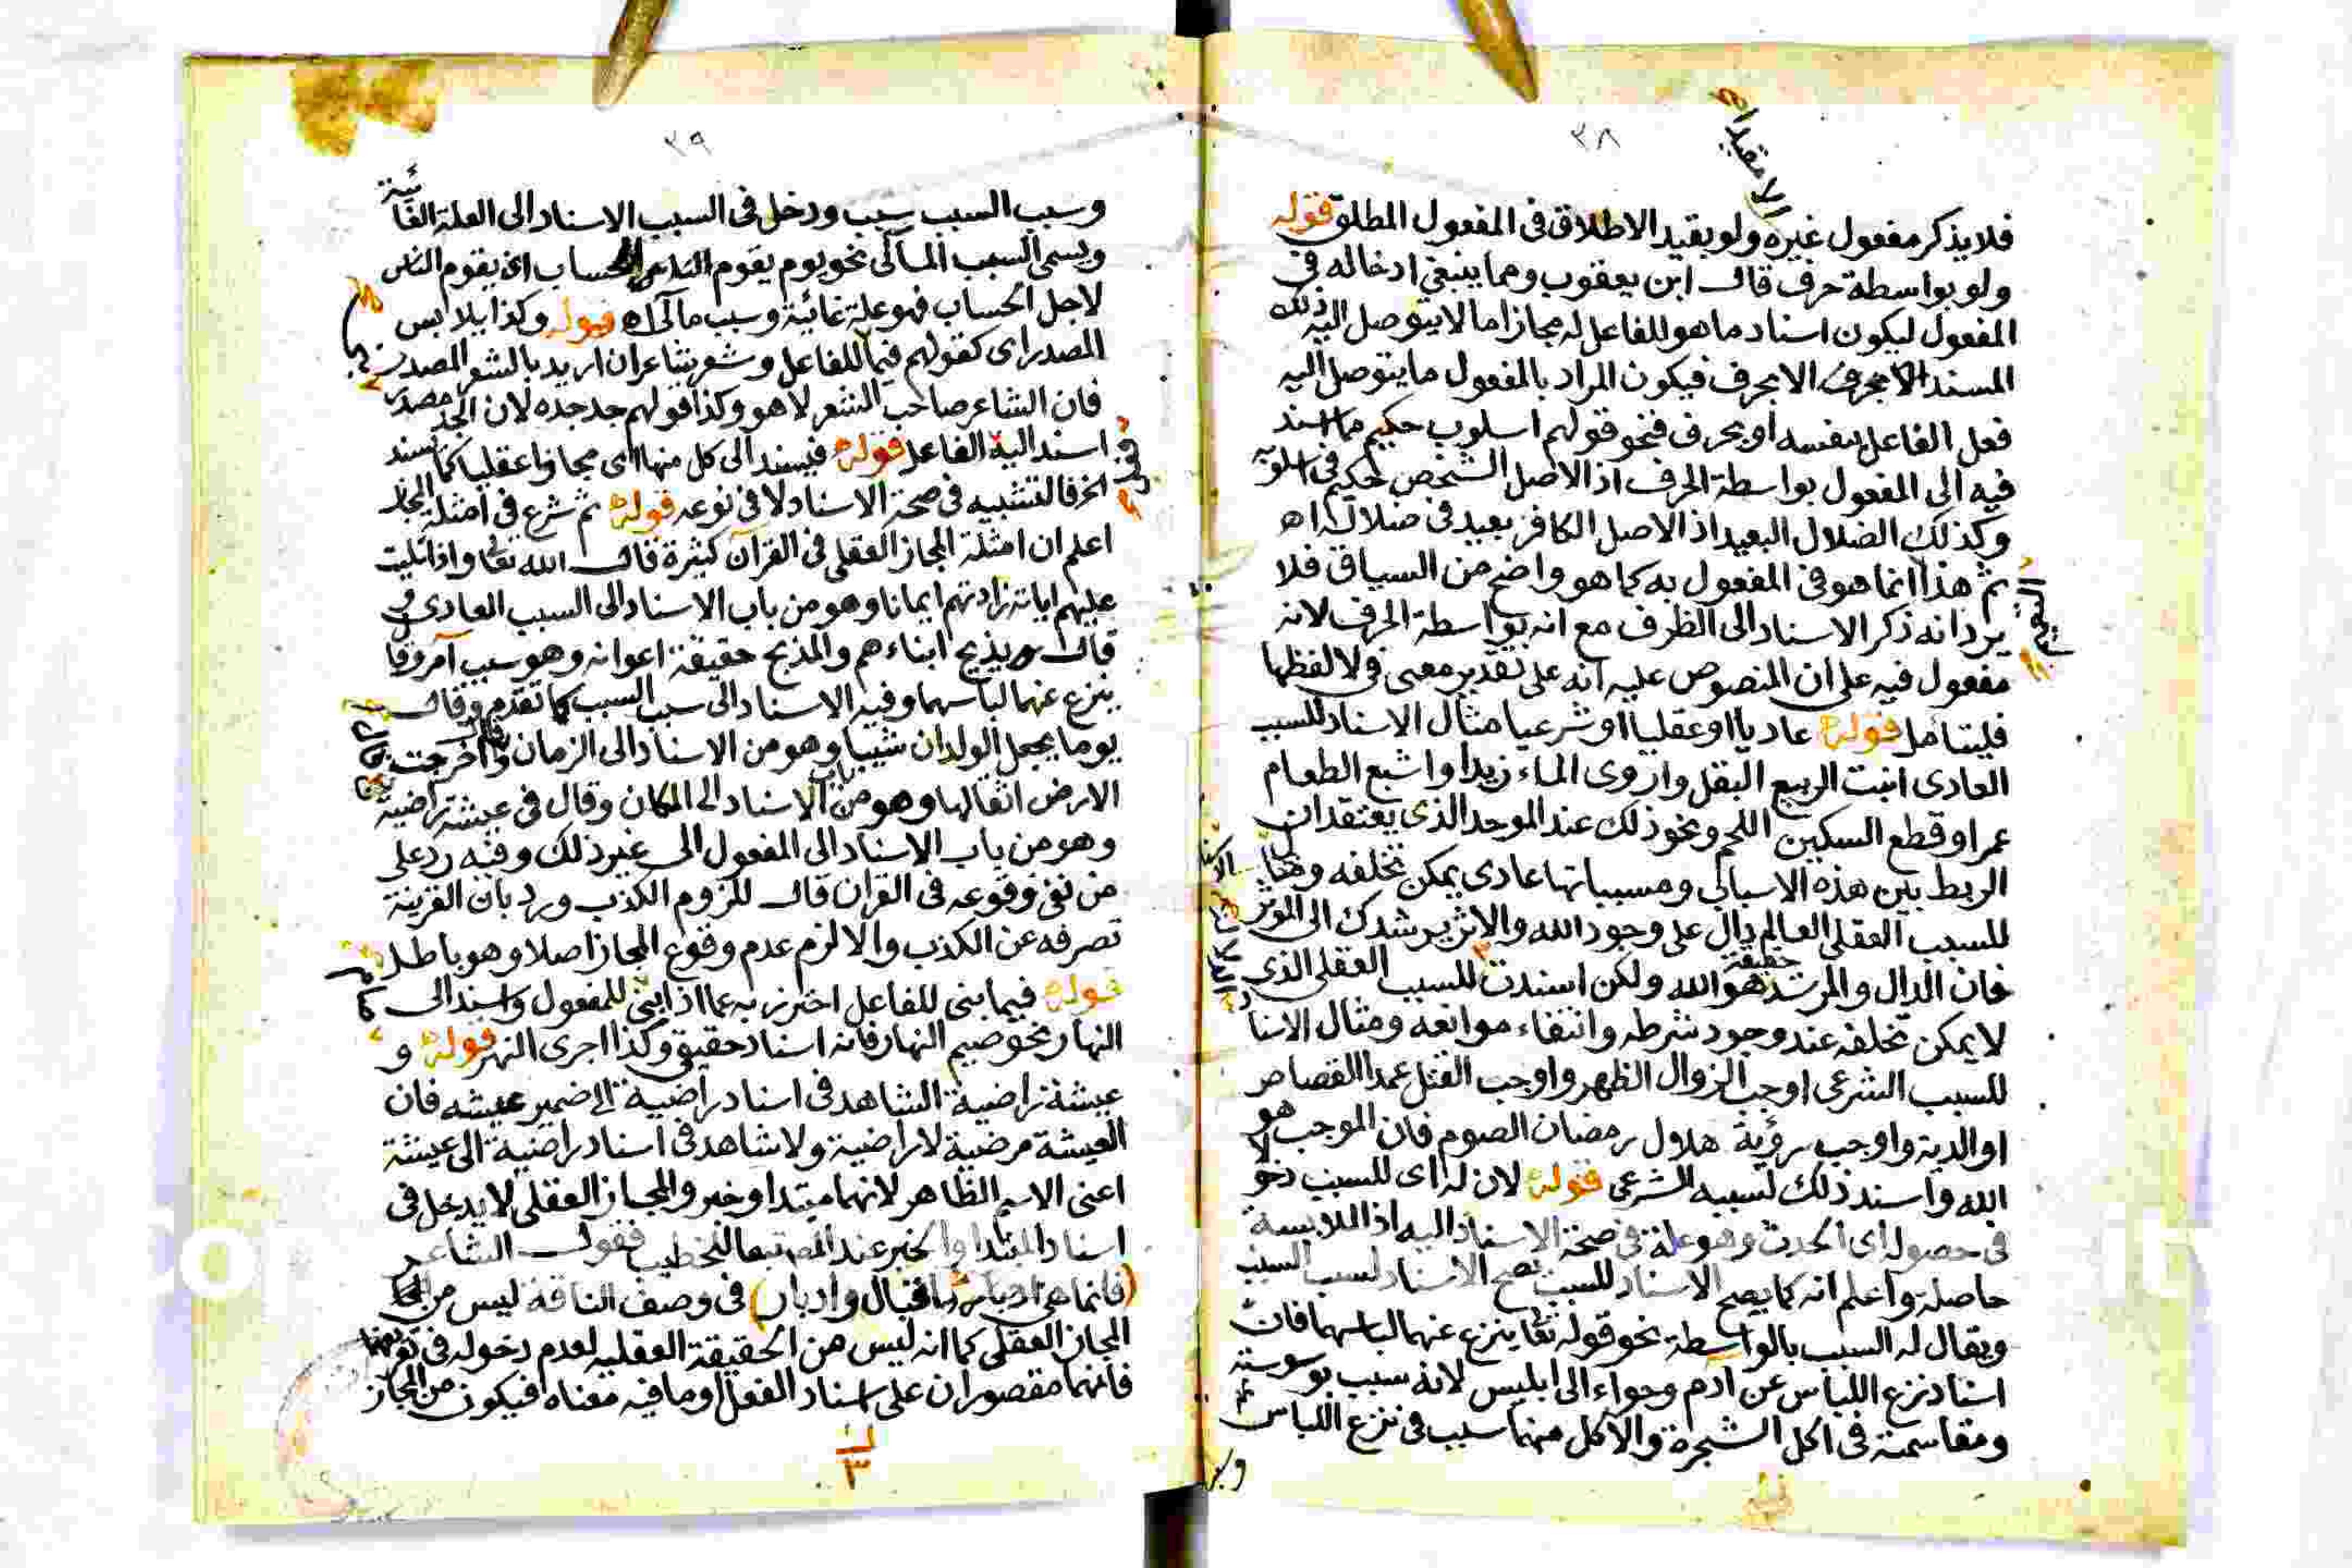 ٣٨
الا مقيدا ه
فلا يذكر مفعول غيره ولو بقيد الاطلاق في المفعول المطلق قوله
ولو بواسطة حرف قال ابن يعقوب ومما ينبغي ادخاله في
المفعول ليكون اسناد ما هو للفاعل له مجازا ما لا يتوصل اليه ذلك
المسند الا بحرف فيكون المراد بالمفعول ما يتوصل اليه
فعل الفاعل بنفسه او بحرف فنحو قولهم اسلوب حكيم مما اسند
فيه الى المفعول بواسطة الحرف اذ الاصل الشخص حكيم في اسلوبه
وكذلك الضلال البعيد اذ الاصل الكافر بعيد في ضلاله اه
ثم هذا انما هو في المفعول به كما هو واضح من السياق فلا
يرد انه ذكر الاسناد الى الظرف مع انه بواسطة الحرف لانه
مفعول فيه على ان المنصوص عليه انه على تقدير معنى في لا لفظها
فليتامل قوله عاديا او عقليا او شرعيا مثال الاسناد للسبب
العادى انبت الربيع البقل واروى الماء زيدا واشبع الطعام
عمرا وقطع السكين اللحم ونحو ذلك عند الموحد الذى يعتقد ان
الربط بين هذه الاسباب ومسبباتها عادى يمكن تخلفه ومثال
للسبب العقلى العالم دال على وجود الله والاثر يرشدك الى المؤثر
فان الدال والمرشد حقيقة هو الله ولكن اسندت للسبب العقلى الذى
لا يمكن تخلفه عند وجود شرطه وانتفاء موانعه ومثال الاسنا
للسبب الشرعى اوجب الزوال الظهر واوجب القتل عمدا القصاص
او الدية واوجب رؤية هلال رمضان الصوم فان الموجب هو
الله واسند ذلك لسببه الشرعى قوله لان له اى للسبب دخو
فى حصوله اى الحدث وهو علة فى صحة الاسناد اليه اذ الملابسة
حاصلة واعلم انه كما يصح الاسناد للسبب يصح الاسناد لسبب السبب
ويقال له السبب بالواسطة نحو قوله تعا ينزع عنهما لباسهما فان
اسناد نزع اللباس عن ادم وحواء الى ابليس لانه سبب بوسوسته
ومقاسمته فى اكل الشجرة والاكل منها سبب فى نزع اللباس
٣٩
وسبب السبب سبب ودخل فى السبب الاسناد الى العلة الغائية
ويسمى السبب المآلى نحو يوم يقوم الحساب اى يقوم الناس
لاجل الحساب فهو علة غائية وسبب مآلى اه قوله وكذا يلابس
المصدر اى كقولهم فيما للفاعل وشعر شاعر ان اريد بالشعر المصدر
فان الشاعر صاحب الشعر لا هو وكذا قولهم جد جده لان الجد مصدر
اسند اليه الفاعل قوله فيسند الى كل منها اى مجازا عقليا كما يسند
الخ فالتشبيه فى صحة الاسناد لا فى نوعه قوله ثم شرع فى امثلة المجاز
اعلم ان امثلة المجاز العقلى فى القرآن كثيرة قال الله تعا واذا تليت
عليهم اياته زادتهم ايمانا وهو من باب الاسناد الى السبب العادى و
قال يذبح ابناءهم والمذبح حقيقة اعوانه وهو سبب آمر وقا
ينزع عنهما لباسهما وفيه الاسناد الى سبب السبب كما تقدم وقال
يوما يجعل الولدان شيبا وهو من الاسناد الى الزمان واخرجت
الارض اثقالها وهو من باب الاسناد الى المكان وقال فى عيشة راضية
وهو من باب الاسناد الى المفعول الى غير ذلك وفيه رد على
من نفى وقوعه فى القران قال للزوم الكذب ورد بان القرينة
تصرفه عن الكذب والا لزم عدم وقوع المجاز اصلا وهو باطل
قوله فيما بنى للفاعل احترز به عما اذا بنى للمفعول واسند الى
النهار نحو صيم النهار فانه اسناد حقيقى وكذا اجرى النهر قوله و
عيشة راضية الشاهد فى اسناد راضية الى ضمير عيشه فان
العيشة مرضية لا راضية ولا شاهد فى اسناد راضية الى عيشة
اعنى الاسم الظاهر لانهما مبتدا وخبر والمجاز العقلى لا يدخل فى
اسناد المبتدا والخبر عند المص تبعا للخطيب فقول الشاعر
(فانما هى اقبال وادبار) فى وصف الناقة ليس من
المجاز العقلى كما انه ليس من الحقيقة العقليه لعدم دخوله فى تعريفهما
فانهما مقصوران على اسناد الفعل او ما فيه معناه فيكون من المجاز